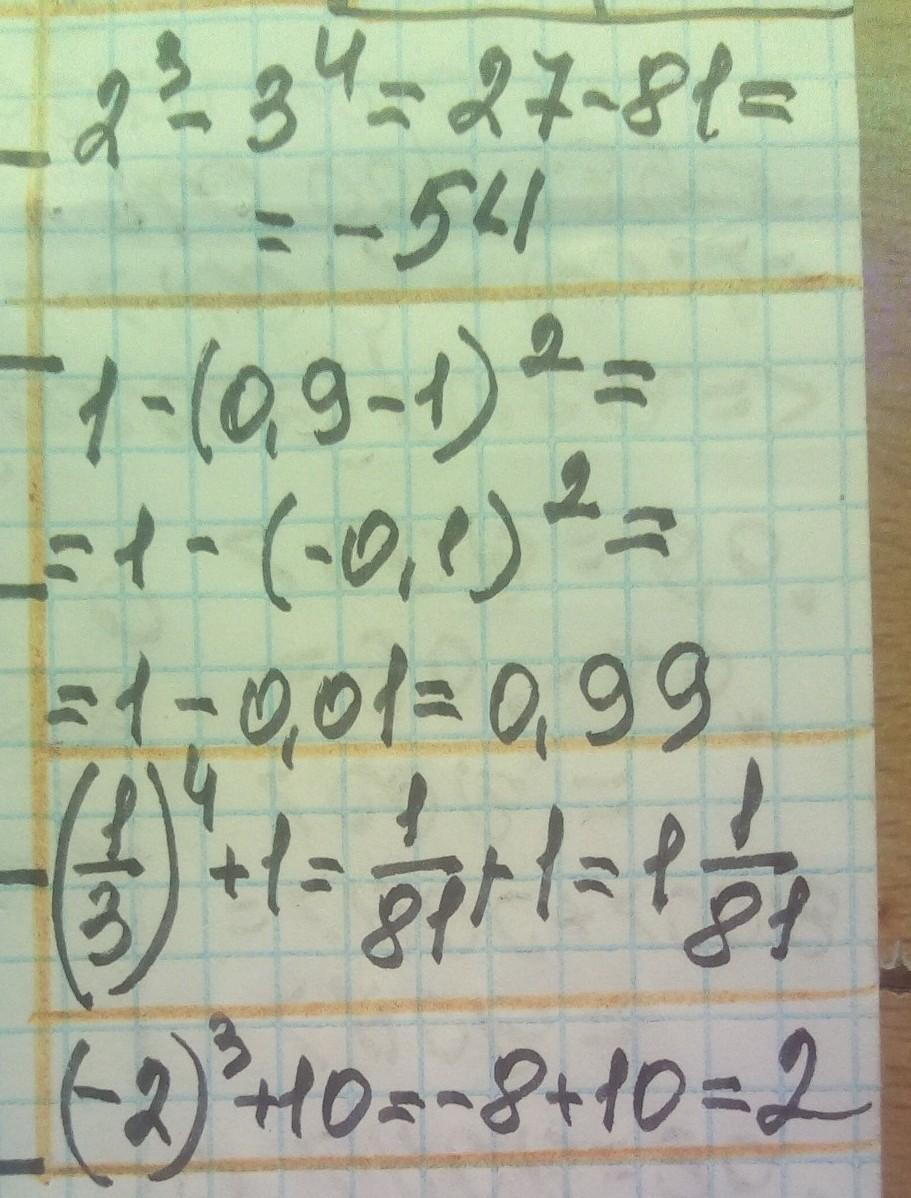 2³ - 3⁴ = 27 - 81 =
= -54
1 - (0,9 - 1)² =
= 1 - (-0,1)² =
= 1 - 0,01 = 0,99
(1/3)⁴ + 1 = 1/81 + 1 = 1 1/81
(-2)³ + 10 = -8 + 10 = 2